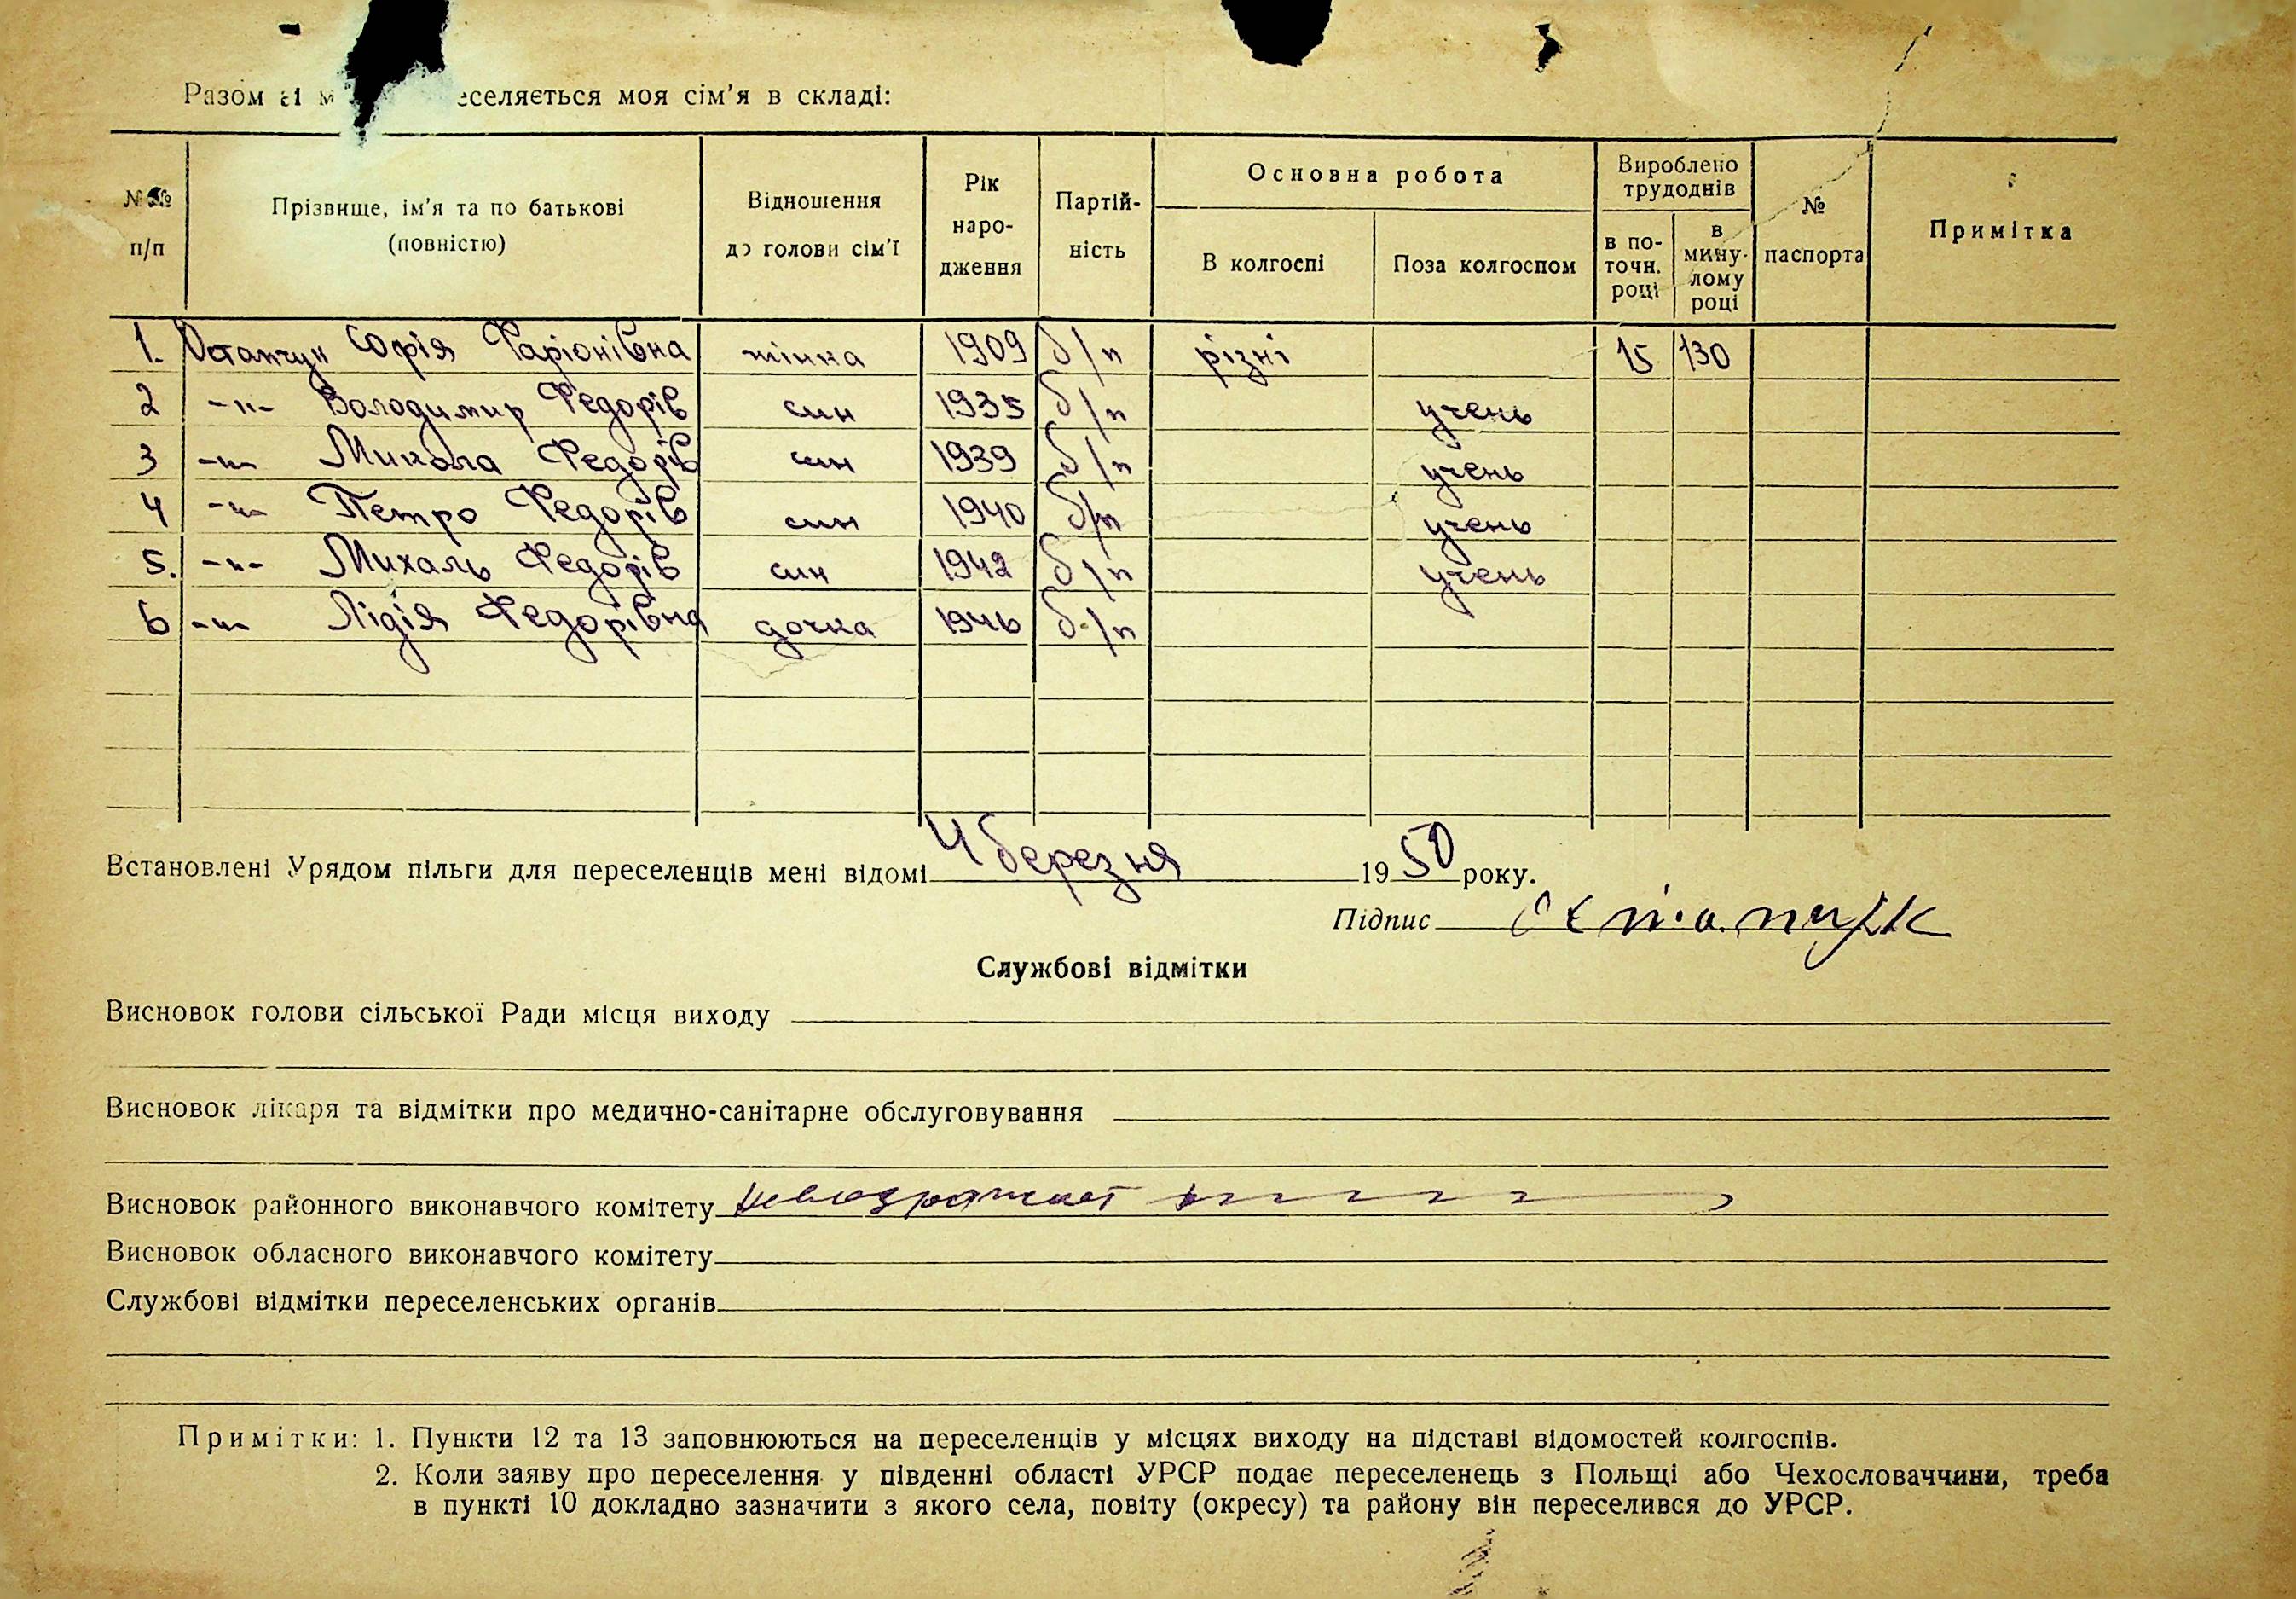 Разом зі м еселяється моя сім'я в складі:
№№ п/п | Прізвище, ім'я та по батькові (повністю) | Відношення до голови сім'ї | Рік народження | Партій-ність | Основна робота | Вироблено трудоднів | № паспорта | Примітка
В колгоспі | Поза колгоспом | в по-точн. році | в мину-лому році
1. Остапчук Софія Фаріонівна жінка 1909 б/п різні 15 130
2 -"- Володимир Федорів син 1935 б/п учень
3 -"- Микола Федорів син 1939 б/п учень
4 -"- Петро Федорів син 1940 б/п учень
5. -"- Михаль Федорів син 1942 б/п учень
6 -"- Лідія Федорівна дочка 1946 б/п
Встановлені Урядом пільги для переселенців мені відомі 4 березня 1950 року.
Підпис Остапчук
Службові відмітки
Висновок голови сільської Ради місця виходу
Висновок лікаря та відмітки про медично-санітарне обслуговування
Висновок районного виконавчого комітету невозражает
Висновок обласного виконавчого комітету
Службові відмітки переселенських органів
Примітки: 1. Пункти 12 та 13 заповнюються на переселенців у місцях виходу на підставі відомостей колгоспів.
2. Коли заяву про переселення у південні області УРСР подає переселенець з Польщі або Чехословаччини, треба
в пункті 10 докладно зазначити з якого села, повіту (окресу) та району він переселився до УРСР.